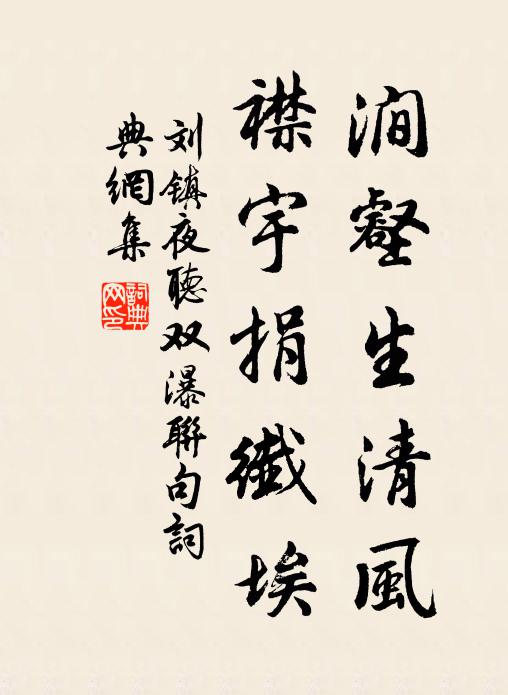 澗壑生清風
襟宇捐纖埃
刘镇夜聽双瀑聯句詞
典網集
詞典
网印